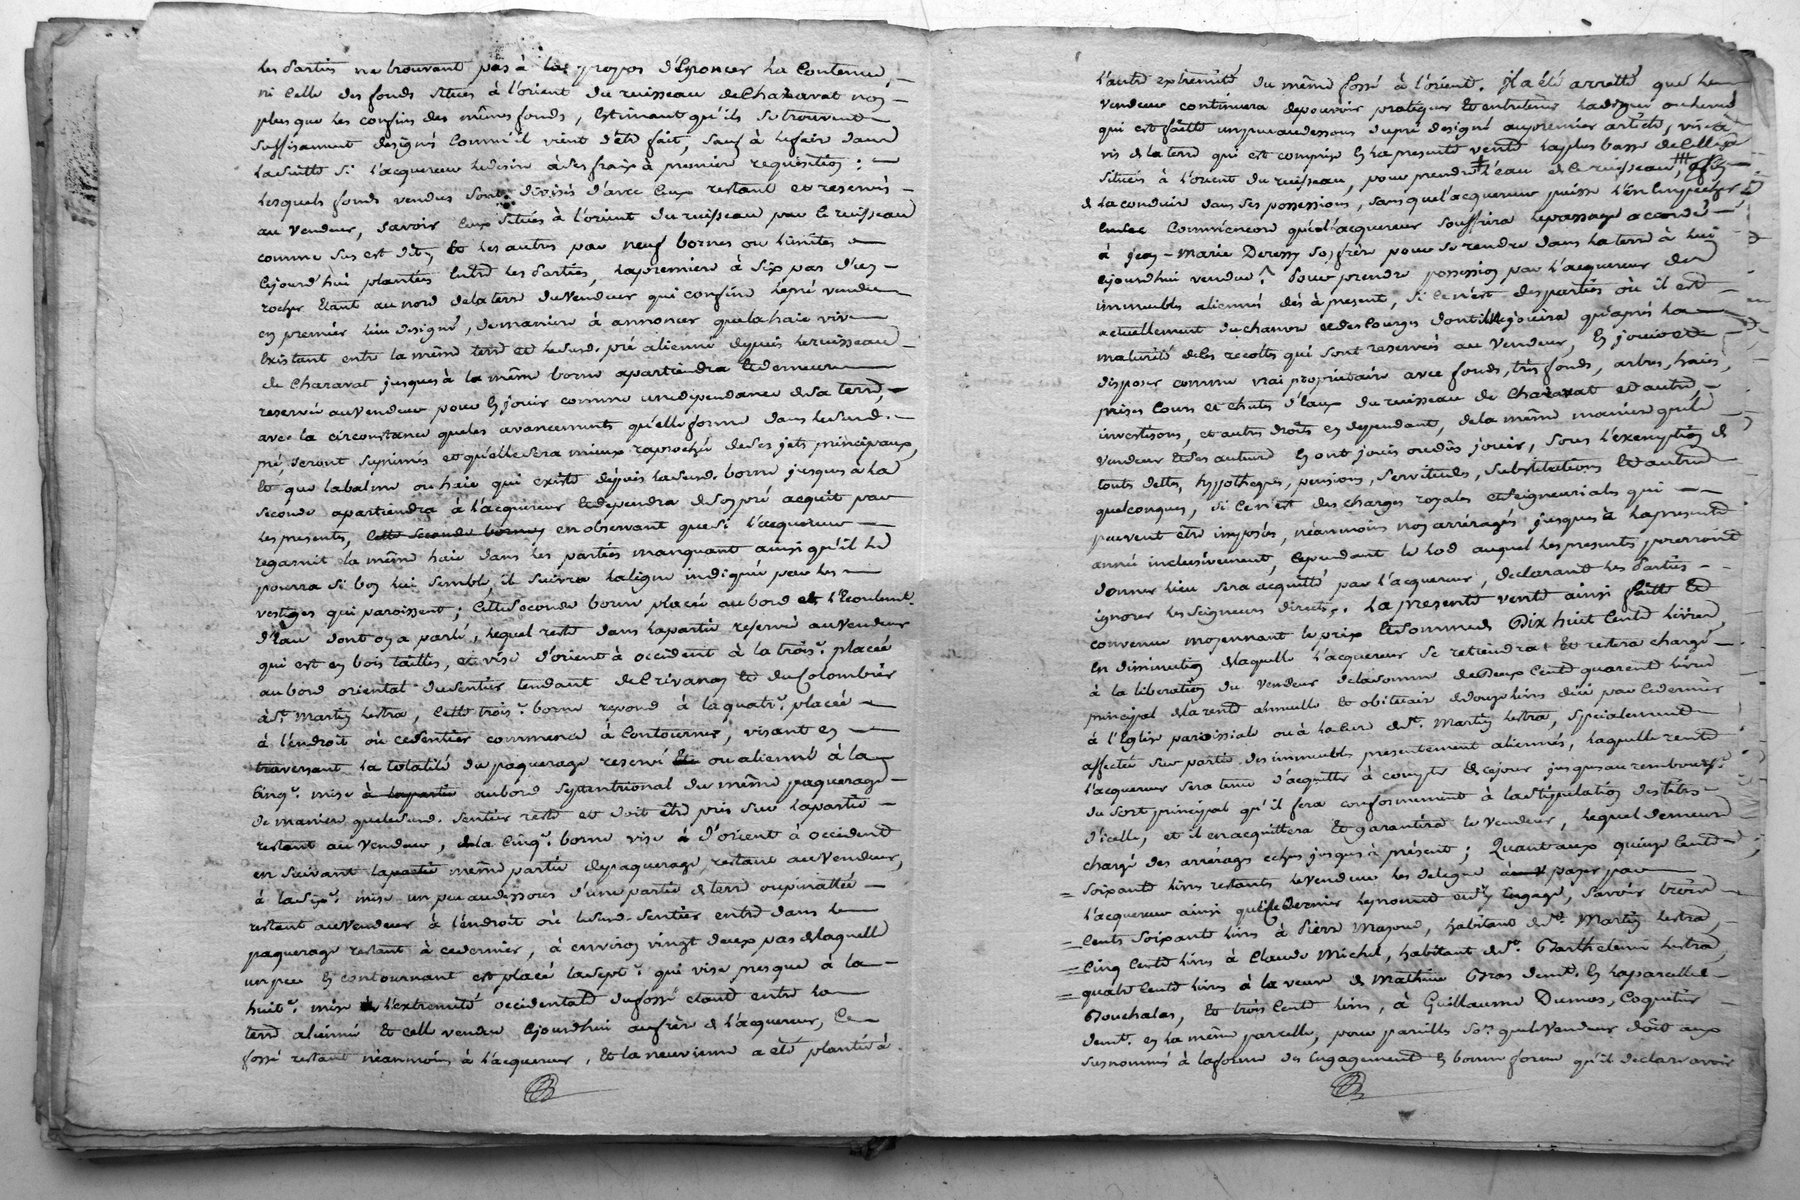 les parties ne trouvant pas à propos d'Enoncer la Contenue,
ni Celle des fonds situés à l'orient du ruisseau de Charavat non
plus que les confins des mêmes fonds, Estimant qu'ils se trouvent
suffisament designés comme il vient d'être fait, sauf à le faire dans
la suitte si l'acquereur le desire à ses fraix à premiere requisition:
Lesquels fonds vendus sont divisés d'avec Ceux restant et reservés
au vendeur, savoir Ceux situés à l'orient du ruisseau par le ruisseau
comme sus est dit, Et les autres par neuf bornes ou limites
Cejourd'hui plantées Entre les parties, la premiere à six pas d'un
rocher Etant au nord de la terre du Vendeur qui confine le pré vendu
en premier lieu designé, de maniere à annoncer que la haie vive
Existant entre la même terre et le susd. pré alienné depuis le ruisseau
de Charavat jusques à la même borne apartiendra Et demeurera
reservée au vendeur pour En jouir comme une dependance de sa terre,
avec la circonstance que les avancements qu'elle forme dans le susd.
pré, seront suprimés et qu'elle sera mieux raprochée de ses jets principaux,
Et que la balme ou haie qui existe depuis la susd. borne jusques à la
seconde apartiendra à l'acquereur Et dependra de son pré acquit par
les presentes, cette seconde borne en observant que si l'acquereur
regarnit la même haie dans les parties manquant ainsi qu'il le
pourra si bon lui semble, il suivra la ligne indiquée par les
vestiges qui paroissent; Cette seconde borne placée au bord de l'Ecoulemt.
d'Eau dont on a parlé, lequel reste dans la partie reservée au Vendeur
qui est en bois taillis, et vise d'orient à occident à la trois.e placée
au bord oriental du sentier tendant de Crivanon Et du Colombier
à St. Martin Lestra, Cette trois.e borne repond à la quatr.e placée
à l'endroit où ce sentier commence à Contourner, visant en
traversant la totalité du paquerage reservé Et ou alienné à la
Cinq.e mise à la partie au bord septentrional du même paquerage
de maniere que le susd. sentier reste et doit être pris sur la partie
restant au vendeur, de la Cinq.e borne vise à d'orient à occident
en suivant la partie même partie de paquerage restant au Vendeur,
à la six.e mise un peu au dessous d'une partie de terre ou pinattée
restant au Vendeur à l'endroit où le susd. sentier entre dans le
paquerage restant à ce dernier, à environ vingt deux pas de laquelle
un peu En contournant est placée la sept.e qui vise presque à la
huit.e mise à l'extremité occidentale du fossé etant entre la
terre alienné Et Celle vendue Cejourdhui au frère de l'acquereur, Ce
fossé restant néanmoins à l'acquereur, Et la neuvieme a été plantée à
l'autre extremité du même fossé à l'orient. Il a été arretté que le
vendeur continuera de pouvoir pratiquer Et entretenir la digue ou levée
qui est faitte un peu au dessous du pré designé au premier article, vis à
vis de la terre qui est comprise En la presente vente la plus basse de Celles
situées à l'orient du ruisseau, pour prendre l'eau de ce ruisseau, afin
de la conduire dans ses possessions, sans que l'acquereur puisse l'En Empecher
Et de Convention que l'acquereur souffrira le passage accordé
à Jean-Marie Deressy son frère pour se rendre dans la terre à lui
Cejourdhui vendue. Pour prendre possession par l'acquereur des
immeubles aliennés dès à present, si Ce n'est des parties où il est
actuellement du chanvre et des Courges dont il ne jouira qu'après la
maturité de Ces recoltes qui sont reservées au Vendeur, En jouir et
disposer comme vrai proprietaire avec fonds, très fonds, arbres, haies,
prises Cours et chutes d'Eaux du ruisseau de Charavat et autres
investisons, et autres droits en dependant, de la même maniere que le
vendeur Et ses auteurs En ont joui ou dû jouir, sous l'exemption de
touts dettes, hypotheques, pensions, servitudes, substitutions Et autres
quelconques, si Ce n'est des charges royales et seigneuriales qui
peuvent être imposées, néanmoins non arréragés jusques à la presente
année inclusivement, Cependant le lod auquel les presentes pourroient
donner lieu sera acquitté par l'acquereur, declarant les parties
ignorer les seigneurs directs. La presente vente ainsi faitte Et
convenue moyennant le prix Et somme de Dix huit Cents livres,
En diminution de laquelle l'acquereur se retiendra Et restera chargé
à la liberation du vendeur de la somme de Deux Cents quarente livres
principal de la rente annuelle Et obituaire de douze livres düe par ce dernier
à l'Eglise paroissiale ou à la cure de St. Martin Lestra, specialement
affectée sur partie des immeubles presentement aliennés, laquelle rente
l'acquereur sera tenu d'acquitter à compter de Cejour jusqu'au remboursemt.
du sort principal qu'il fera conformement à la stipulation des titres
d'icelle, et il en acquittera Et garantira le vendeur, lequel demeure
chargé des arrérages echus jusques à présent; Quant aux quinze Cents
soixante livres restants le vendeur les delegue à payer par
l'acquereur ainsi que Ce dernier le promet Et s'y Engage, savoir trois
Cents soixante livres à Pierre Masson, habitant de St. Martin Lestra,
Cinq Cents livres à Claude Michel, habitant de St. Barthelemi Lestra,
quatre Cents livres à la veuve de Mathieu Gras demt. En la parcelle de
Bouchalas, Et trois Cents livres, à Guillaume Dumas, Coquetier
demt. en la même parcelle, pour pareilles so.es que le Vendeur doit aux
susnommés à la forme des Engagements En bonne forme qu'il declare avoir